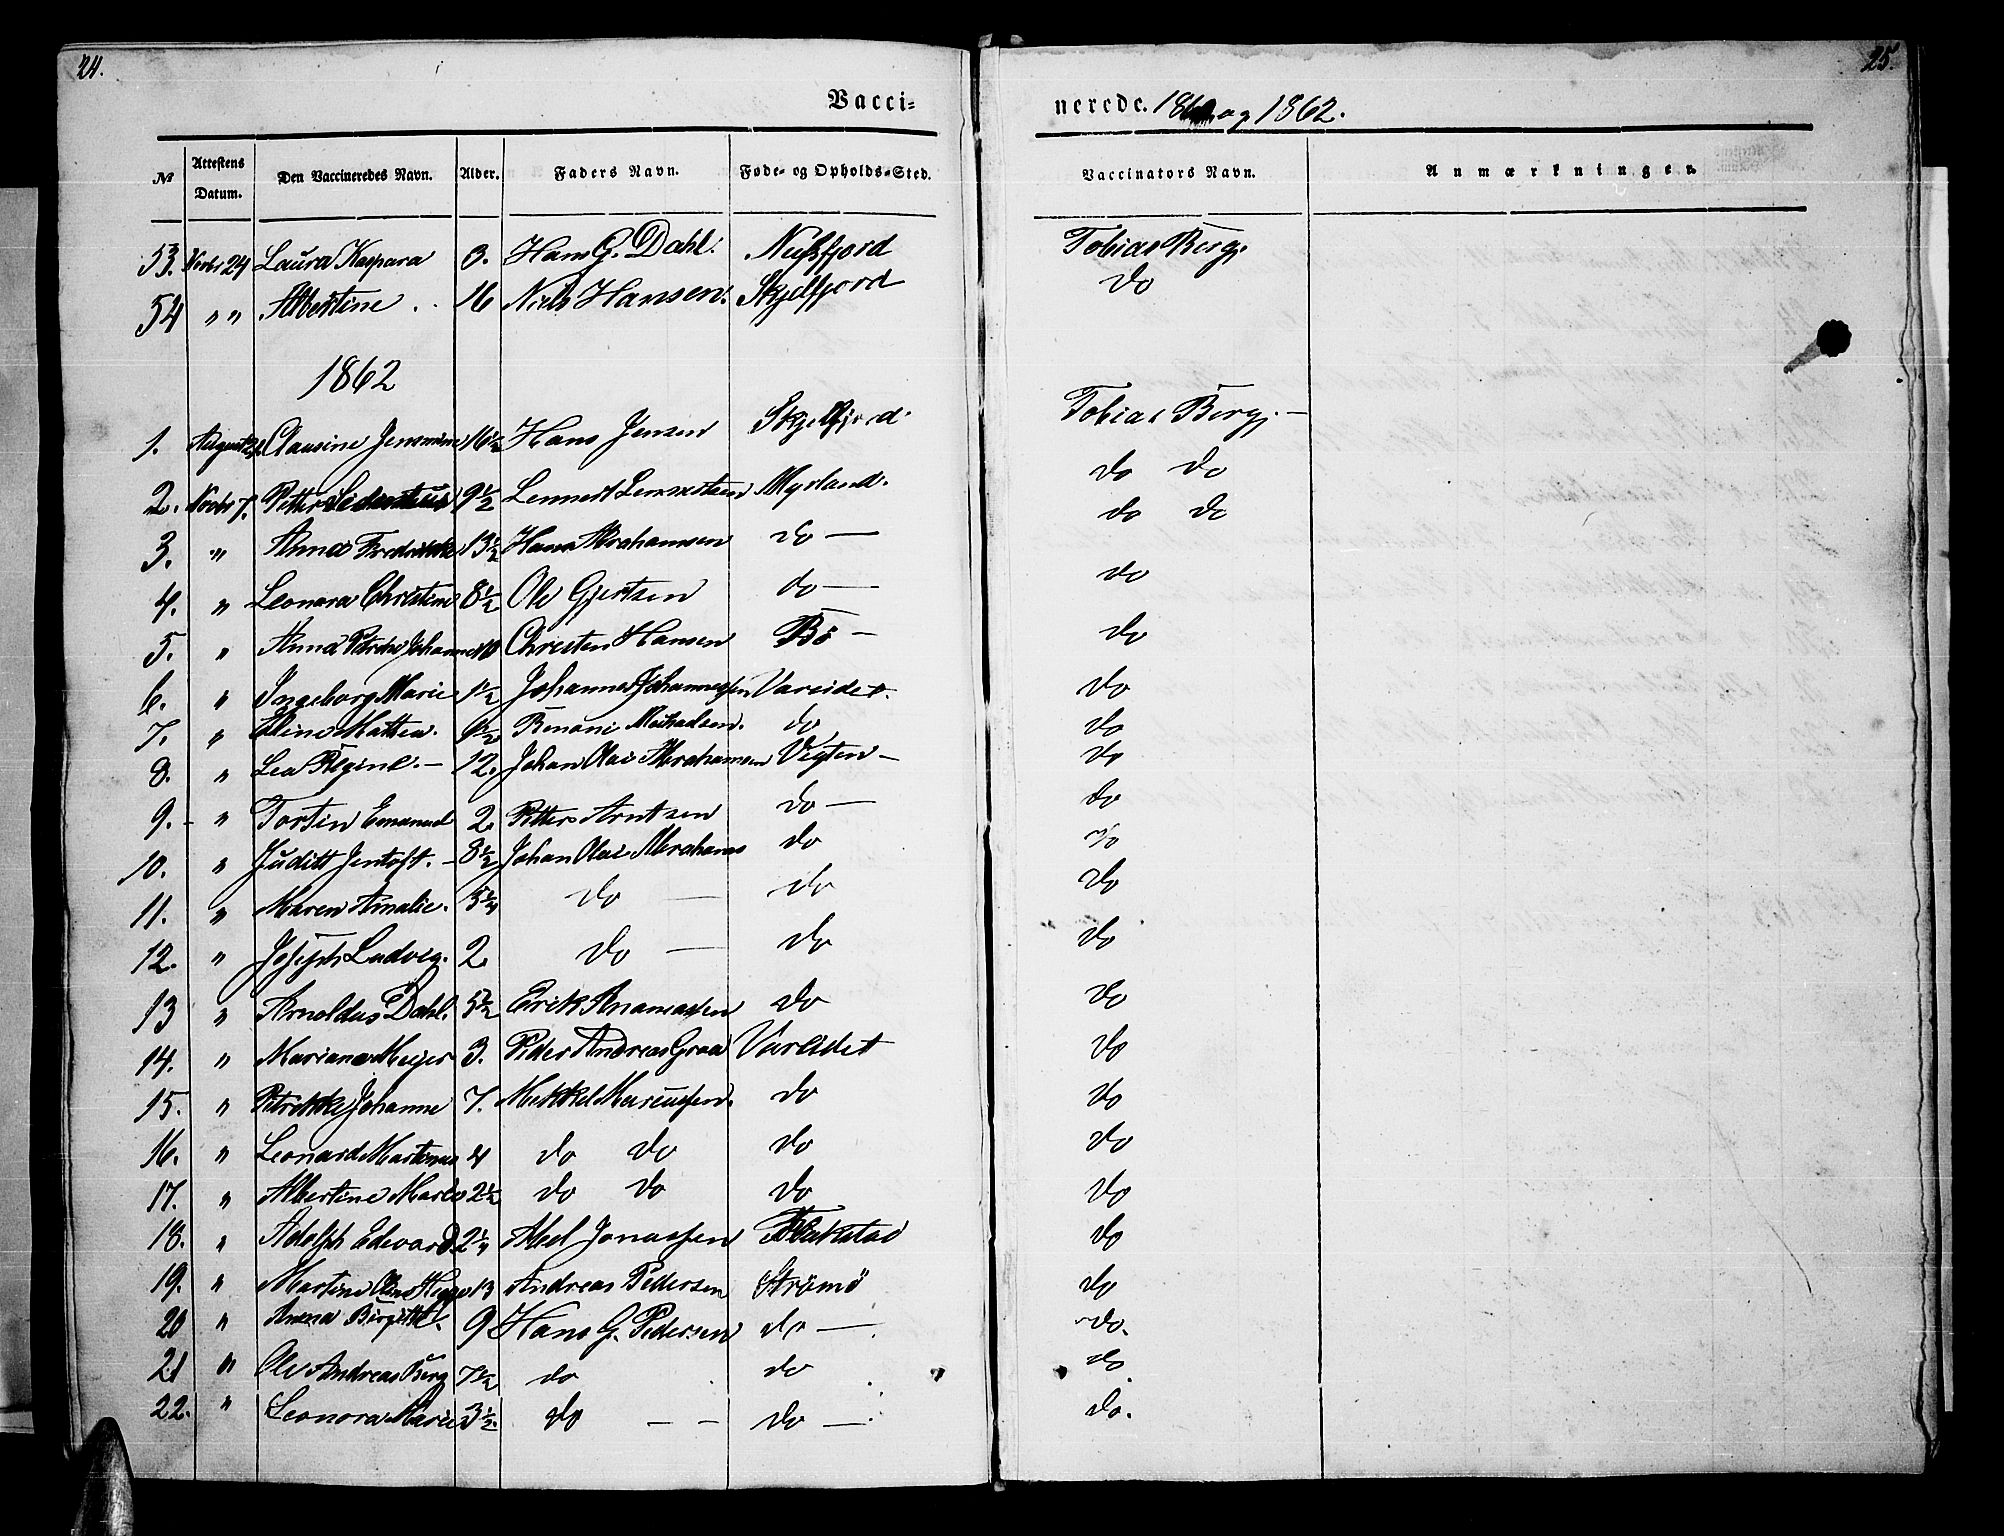 24.
25.
Vacci-
nerede. og 1862.
No Attestens Datum. Den Vaccineredes Navn. Alder. Faders Navn. Føde- og Opholds-Sted. Vaccinators Navn. Anmærkninger.
53. Novbr 24 Laura Kaspara 3. Hans G. Dahl. Nussfjord Tobias Berg.
54 " " Albertine 16 Niels Hansen. Skjelfjord do
1862
1. August Clausine Jensmine 16 1/2 Hans Jensen Skjelfjord Tobias Berg. —
2. Novbr 7. Petter 9 1/2 Lennert Myrland. do do
3. " Anna Fredrikke 13 1/2 Hans Abrahamsen do — do do
4. " Leonora Christine 8 1/2 Ole Gjertsen do — do
5. " Anna Petrikke Johanne 10 Christen Hansen Bö — do
6. " Ingeborg Marie 1 1/2 Johannes Johannessen Vareidet. do
7. " Eline Mattea. Benoni Michaelsen. do do
8. " Lea Regine. — 12. Johan Olai Abrahamsen Vigten — do
9. - " Tortin Emanuel 2. Petter Arntsen do — do
10. " Juditt Jentoft. — 8 1/2 Johan Olai Abrahams do do
11. " Maren Amalie. do — do do
12. " Joseph Ludvig. 2. do — do do
13 " Arnoldus Dahl. 5 1/2 Erik Ananiassen do do
14. " Mariane Meyer 3. Peder Andreas Graa Vareidet do
15. " Petrikke Johanne 7. Mekkel Mariussen. do do
16. " Leonard Martinus 4 do do do do
17. " Albertine Marie 2 1/2 do do do do
18. " Adolph Edevard 2 1/4 Abel Jonassen Flakstad do
19. " Martine 13 Andreas Pedersen Strömö do
20 " Anna Birgitte. 9 Hans G. Pedersen do — do.
21 " Ole Andreas Berg 7 1/2 do do do.
22. " Leonora Marie 3 1/2. do — — do — do.